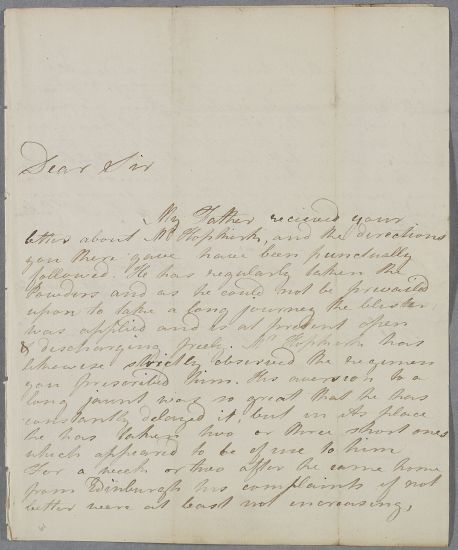 Dear Sir
My Father recieved your
letter about Mr Hopkirk, and the directions
you there gave have been punctually
followed. He has regularly taken the
Powders and as he could not be prevailed
upon to take a long journey the blister
was applied and is at present open
& discharging freely. Mr Hopkirk has
likewise strictly observed the regimen
you prescribed him. His aversion to a
long jaunt was so great that he has
constantly delayed it, but in its place
he has taken two or three short ones
which appeared to be of use to him
For a week or two after he came home
from Edinburgh his complaints if not
better were at least not increasing,